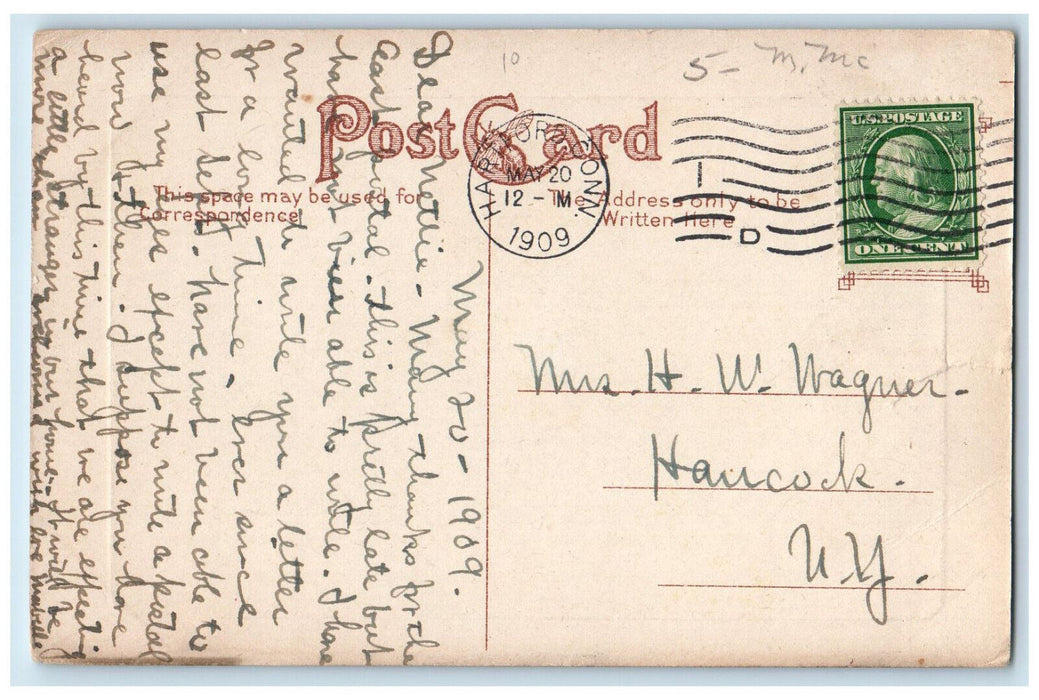 10
5- M. Mc
Post Card
HARTFORD, CONN.
MAY 20
12 - M
1909
1
D
U.S. POSTAGE
ONE CENT
This space may be used for
Correspondence
The Address only to be
Written Here
May 20 - 1909.
Dear Nettie - Many thanks for the
last postal. this is pretty late but
have not been able to write. I have
wanted to write you a letter
for a long time. ever since
last Sept. have not been able to
use my eyes except to write a postal
now & then. I suppose you have
heard by this time that we are expecting
a little stranger in our home. It will be
with love
Mrs. H. W. Wagner.
Hancock.
N.Y.